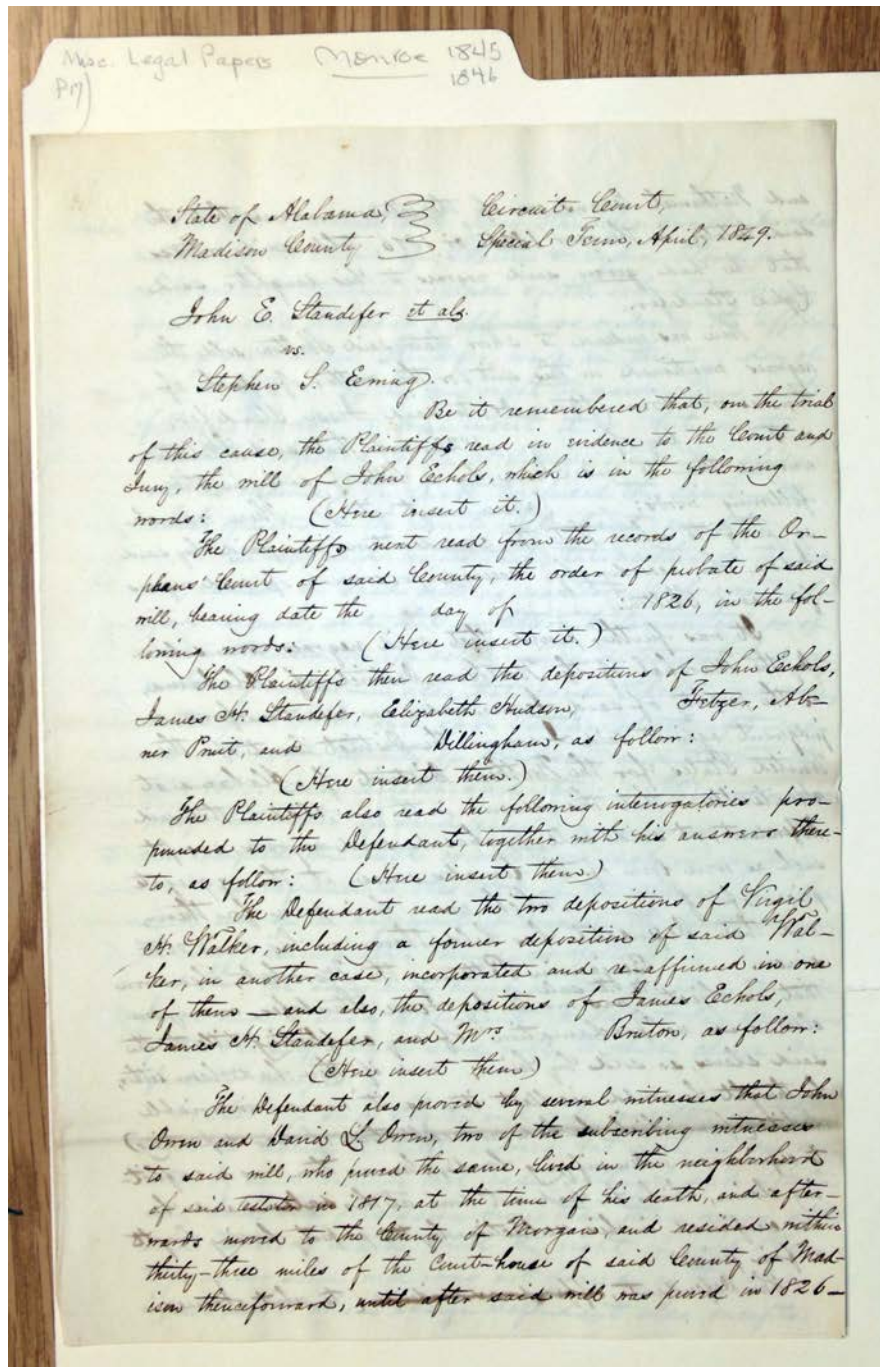 Misc. Legal Papers Monroe 1845
1846
State of Alabama, Circuit Court,
Madison County Special Term, April, 1849.
John E. Standefer et als.
vs.
Stephen S. Ewing.
Be it remembered that, on the trial
of this cause, the Plaintiffs read in evidence to the Court and
Jury, the will of John Echols, which is in the following
words: (Here insert it.)
The Plaintiffs next read from the records of the Or-
phans' Court of said County, the order of probate of said
will, bearing date the day of 1826, in the fol-
lowing words: (Here insert it.)
The Plaintiffs then read the depositions of John Echols,
James H. Standefer, Elizabeth Hudson, Fetzer, Ab-
ner Pruit, and Dillingham, as follow:
(Here insert them.)
The Plaintiffs also read the following interrogatories pro-
pounded to the Defendant, together with his answers there-
to, as follow: (Here insert them)
The Defendant read the two depositions of Virgil
H. Walker, including a former deposition of said Wal-
ker, in another case, incorporated and re-affirmed in one
of them — and also, the depositions of James Echols,
James H. Standefer, and Mrs Bruton, as follow:
(Here insert them)
The Defendant also proved by several witnesses that John
Owen and David L. Owen, two of the subscribing witnesses
to said will, who proved the same, lived in the neighborhood
of said testator in 1817, at the time of his death, and after-
wards moved to the County of Morgan, and resided within
thirty-three miles of the Court-house of said County of Mad-
ison thenceforward, until after said will was proved in 1826—